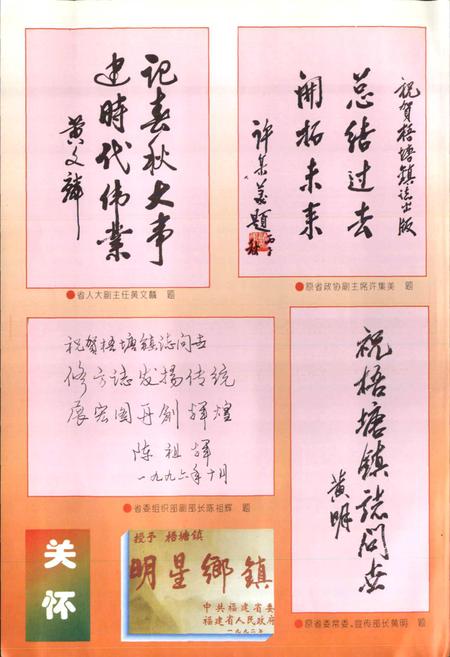 记春秋大事
建時代伟業
黄文麟
省人大副主任黄文麟 题
祝贺梧塘镇志出版
总结过去
開拓未来
许集美題
丙子秋
原省政协副主席许集美 题
祝贺梧塘镇誌问世
修方誌发揚传统
展宏图再創辉煌
陈祖辉
一九九六年十月
省委组织部副部长陈祖辉 题
祝梧塘镇誌问世
黄明
原省委常委、宣传部长黄明 题
关怀
授予 梧塘镇
明星鄉镇
中共福建省委
福建省人民政府